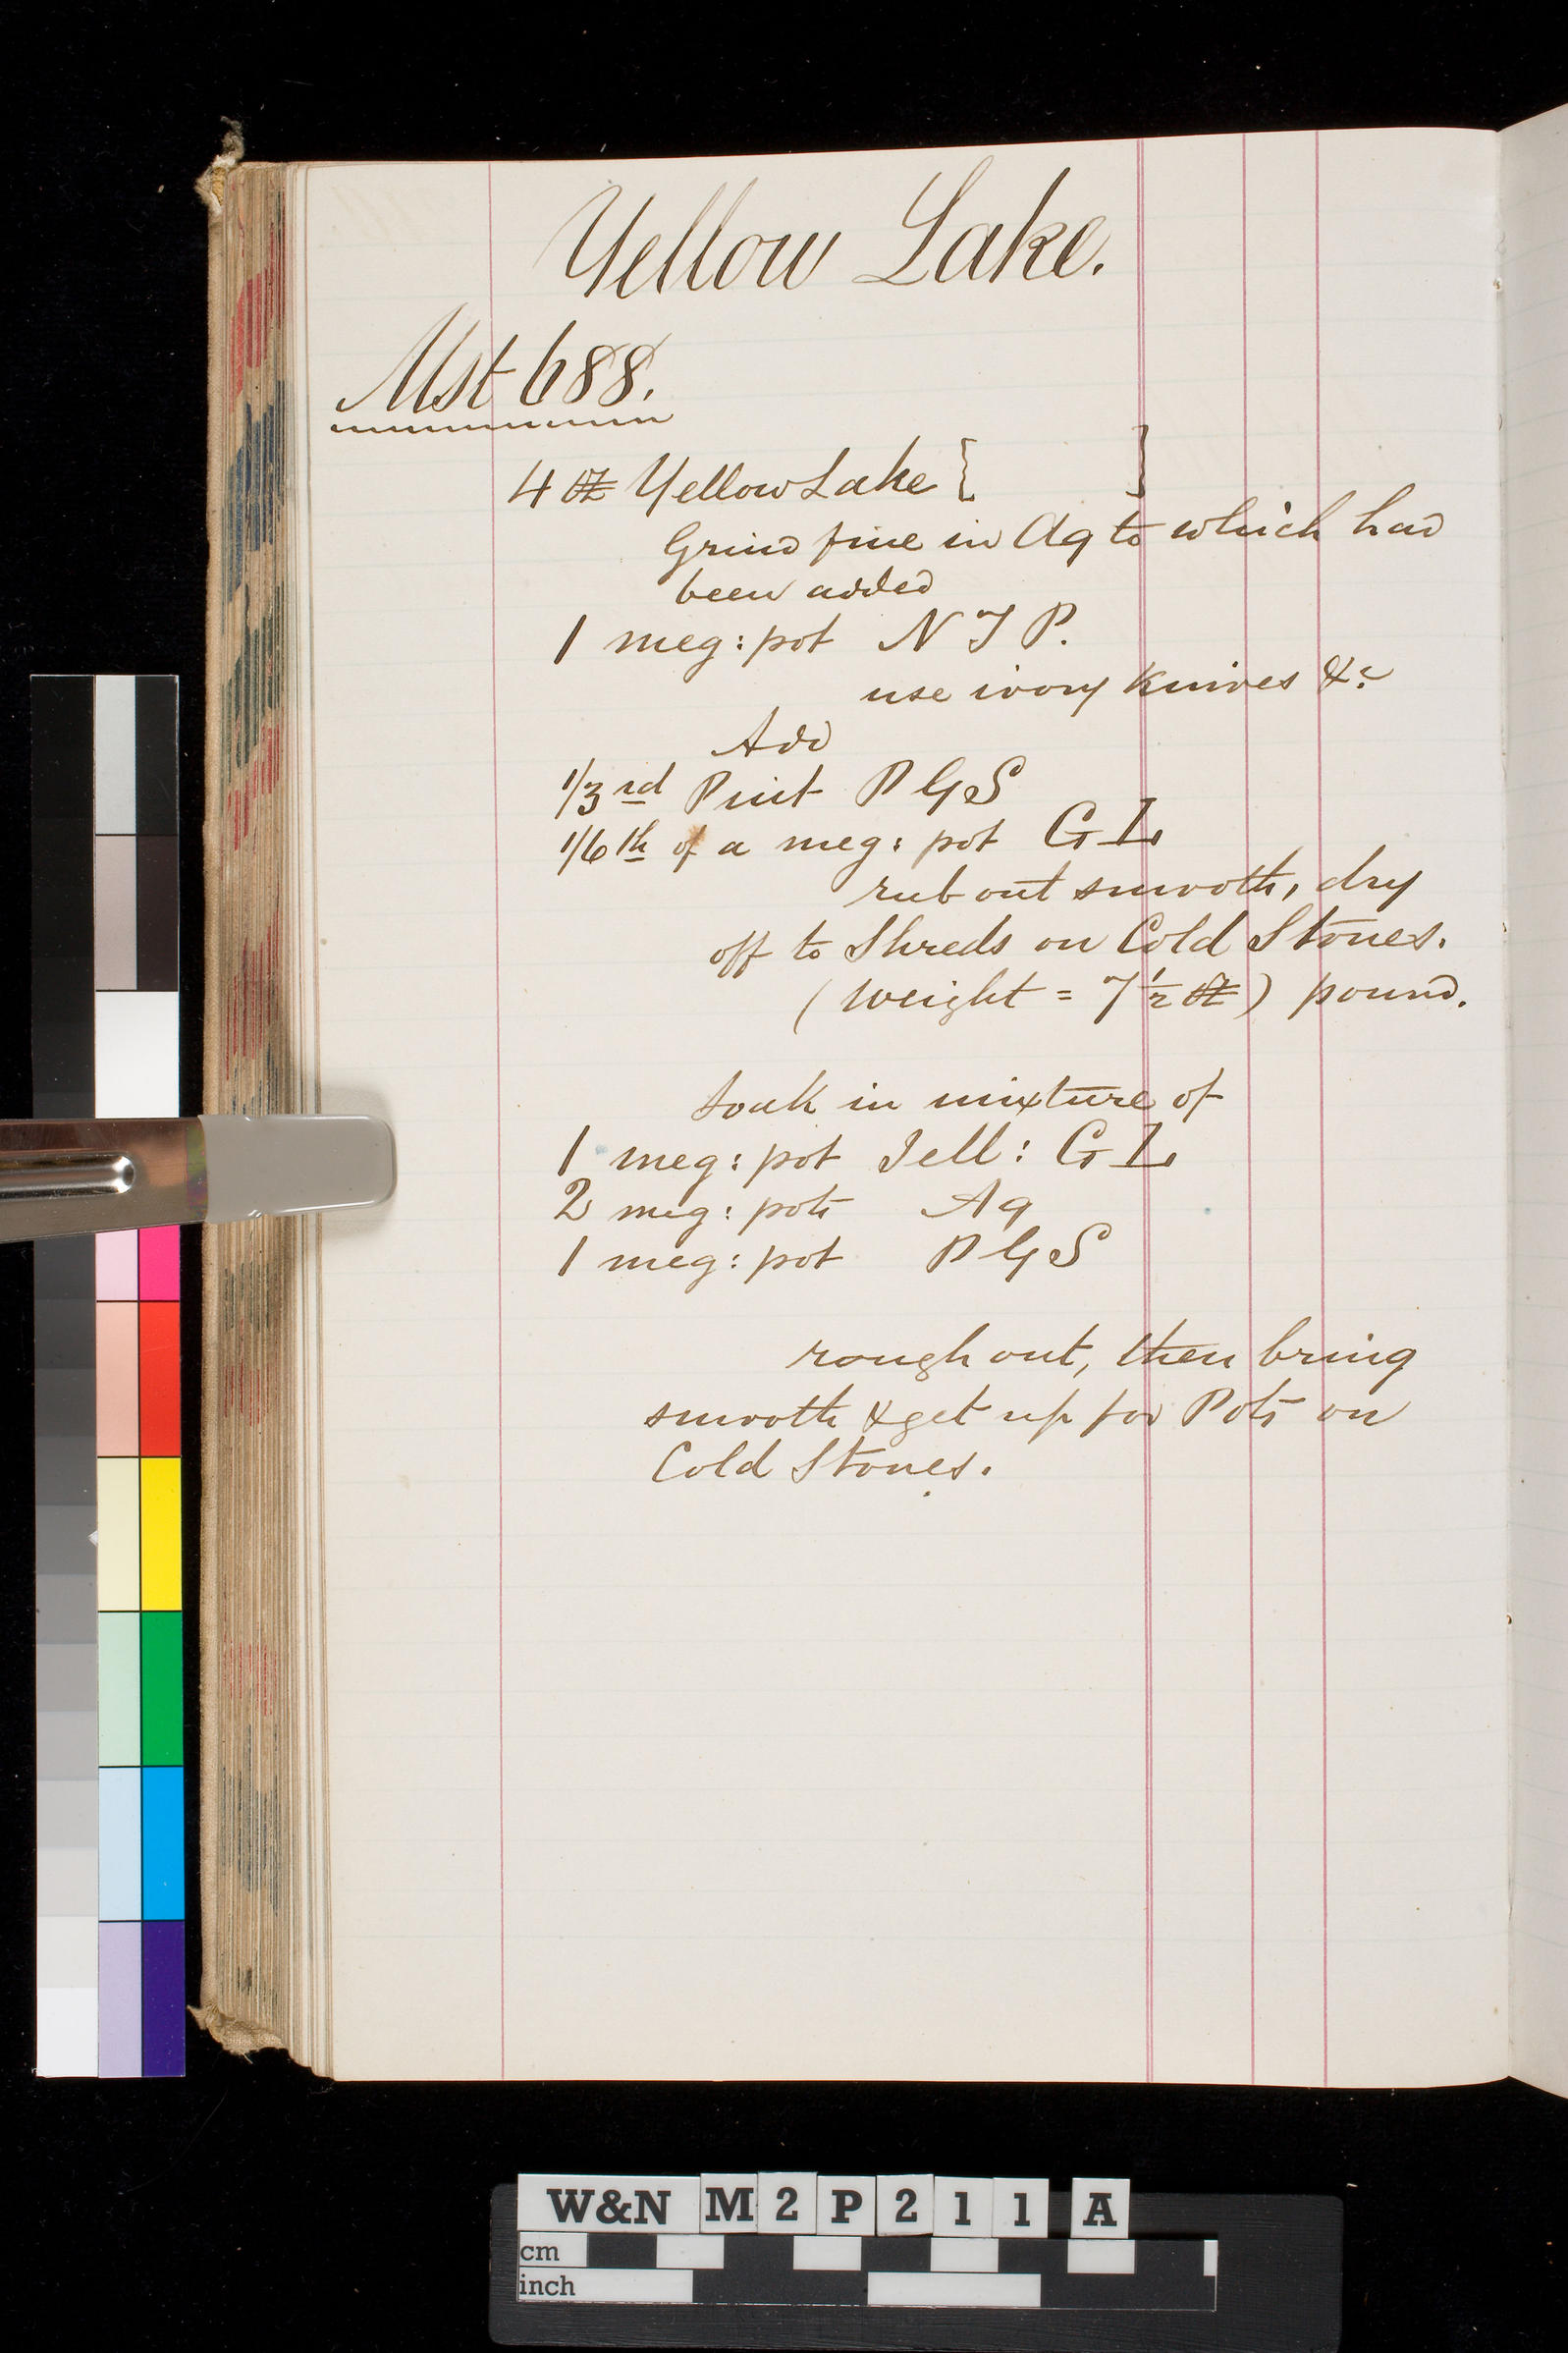 Yellow Lake.
Mst 688.
4 lb Yellow Lake [ ]
Grind fine in Aq to which had
been added
1 meg: pot N T P.
use ivory knives &c
Add
1/3rd Pint P G S
1/6th of a meg: pot G L
rub out smooth, dry
off to Shreds on Cold Stones.
( weight = 7 1/2 lb ) pound.
Soak in mixture of
1 meg: pot Jell: G L
2 meg: pots Aq
1 meg: pot P G S
rough out, then bring
smooth & get up for Pots on
Cold Stones.
W&N M2P211 A
cm
inch